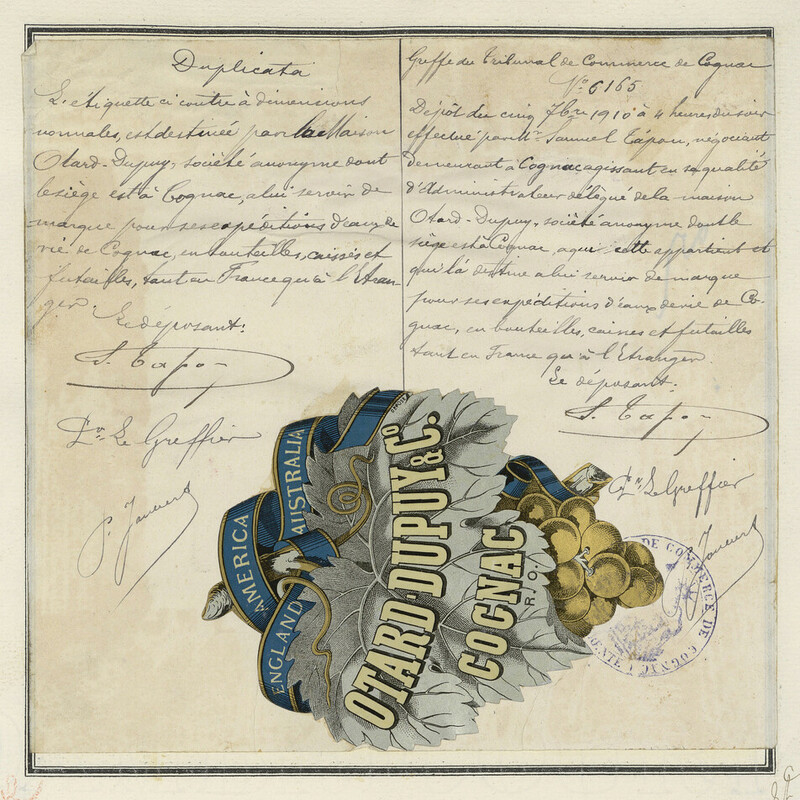 Duplicata
L'étiquette ci contre à dimensions
normales, est destinée par la Maison
Otard-Dupuy, société anonyme dont
le siège est à Cognac, à lui servir de
marque pour ses expéditions d'eaux de
vie de Cognac, en bouteilles, caisses et
futailles, tant en France qu'à l'Etran-
ger.
Le déposant:
S. Tapon
Pr Le Greffier
Greffe du Tribunal de Commerce de Cognac
No 6165
Dépôt du cinq 7bre 1910 à 4 heures du soir
effectué par Mr Samuel Tapon, négociant
demeurant à Cognac agissant en sa qualité
d'Administrateur délégué de la maison
Otard-Dupuy, société anonyme dont le
siège est à Cognac, à qui cette appartient et
qui l'a destine à lui servir de marque
pour ses expéditions d'eaux de vie de Co-
gnac, en bouteilles, caisses et futailles
tant en France qu'à l'Etranger.
Le déposant:
S. Tapon
Pr Le Greffier
AUSTRALIA
AMERICA
ENGLAND
OTARD-DUPUY & Co.
COGNAC
R.O.
DE COMMERCE DE COGNAC